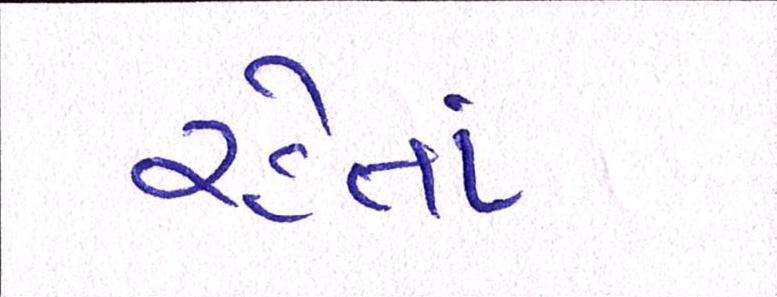 રહેતાં